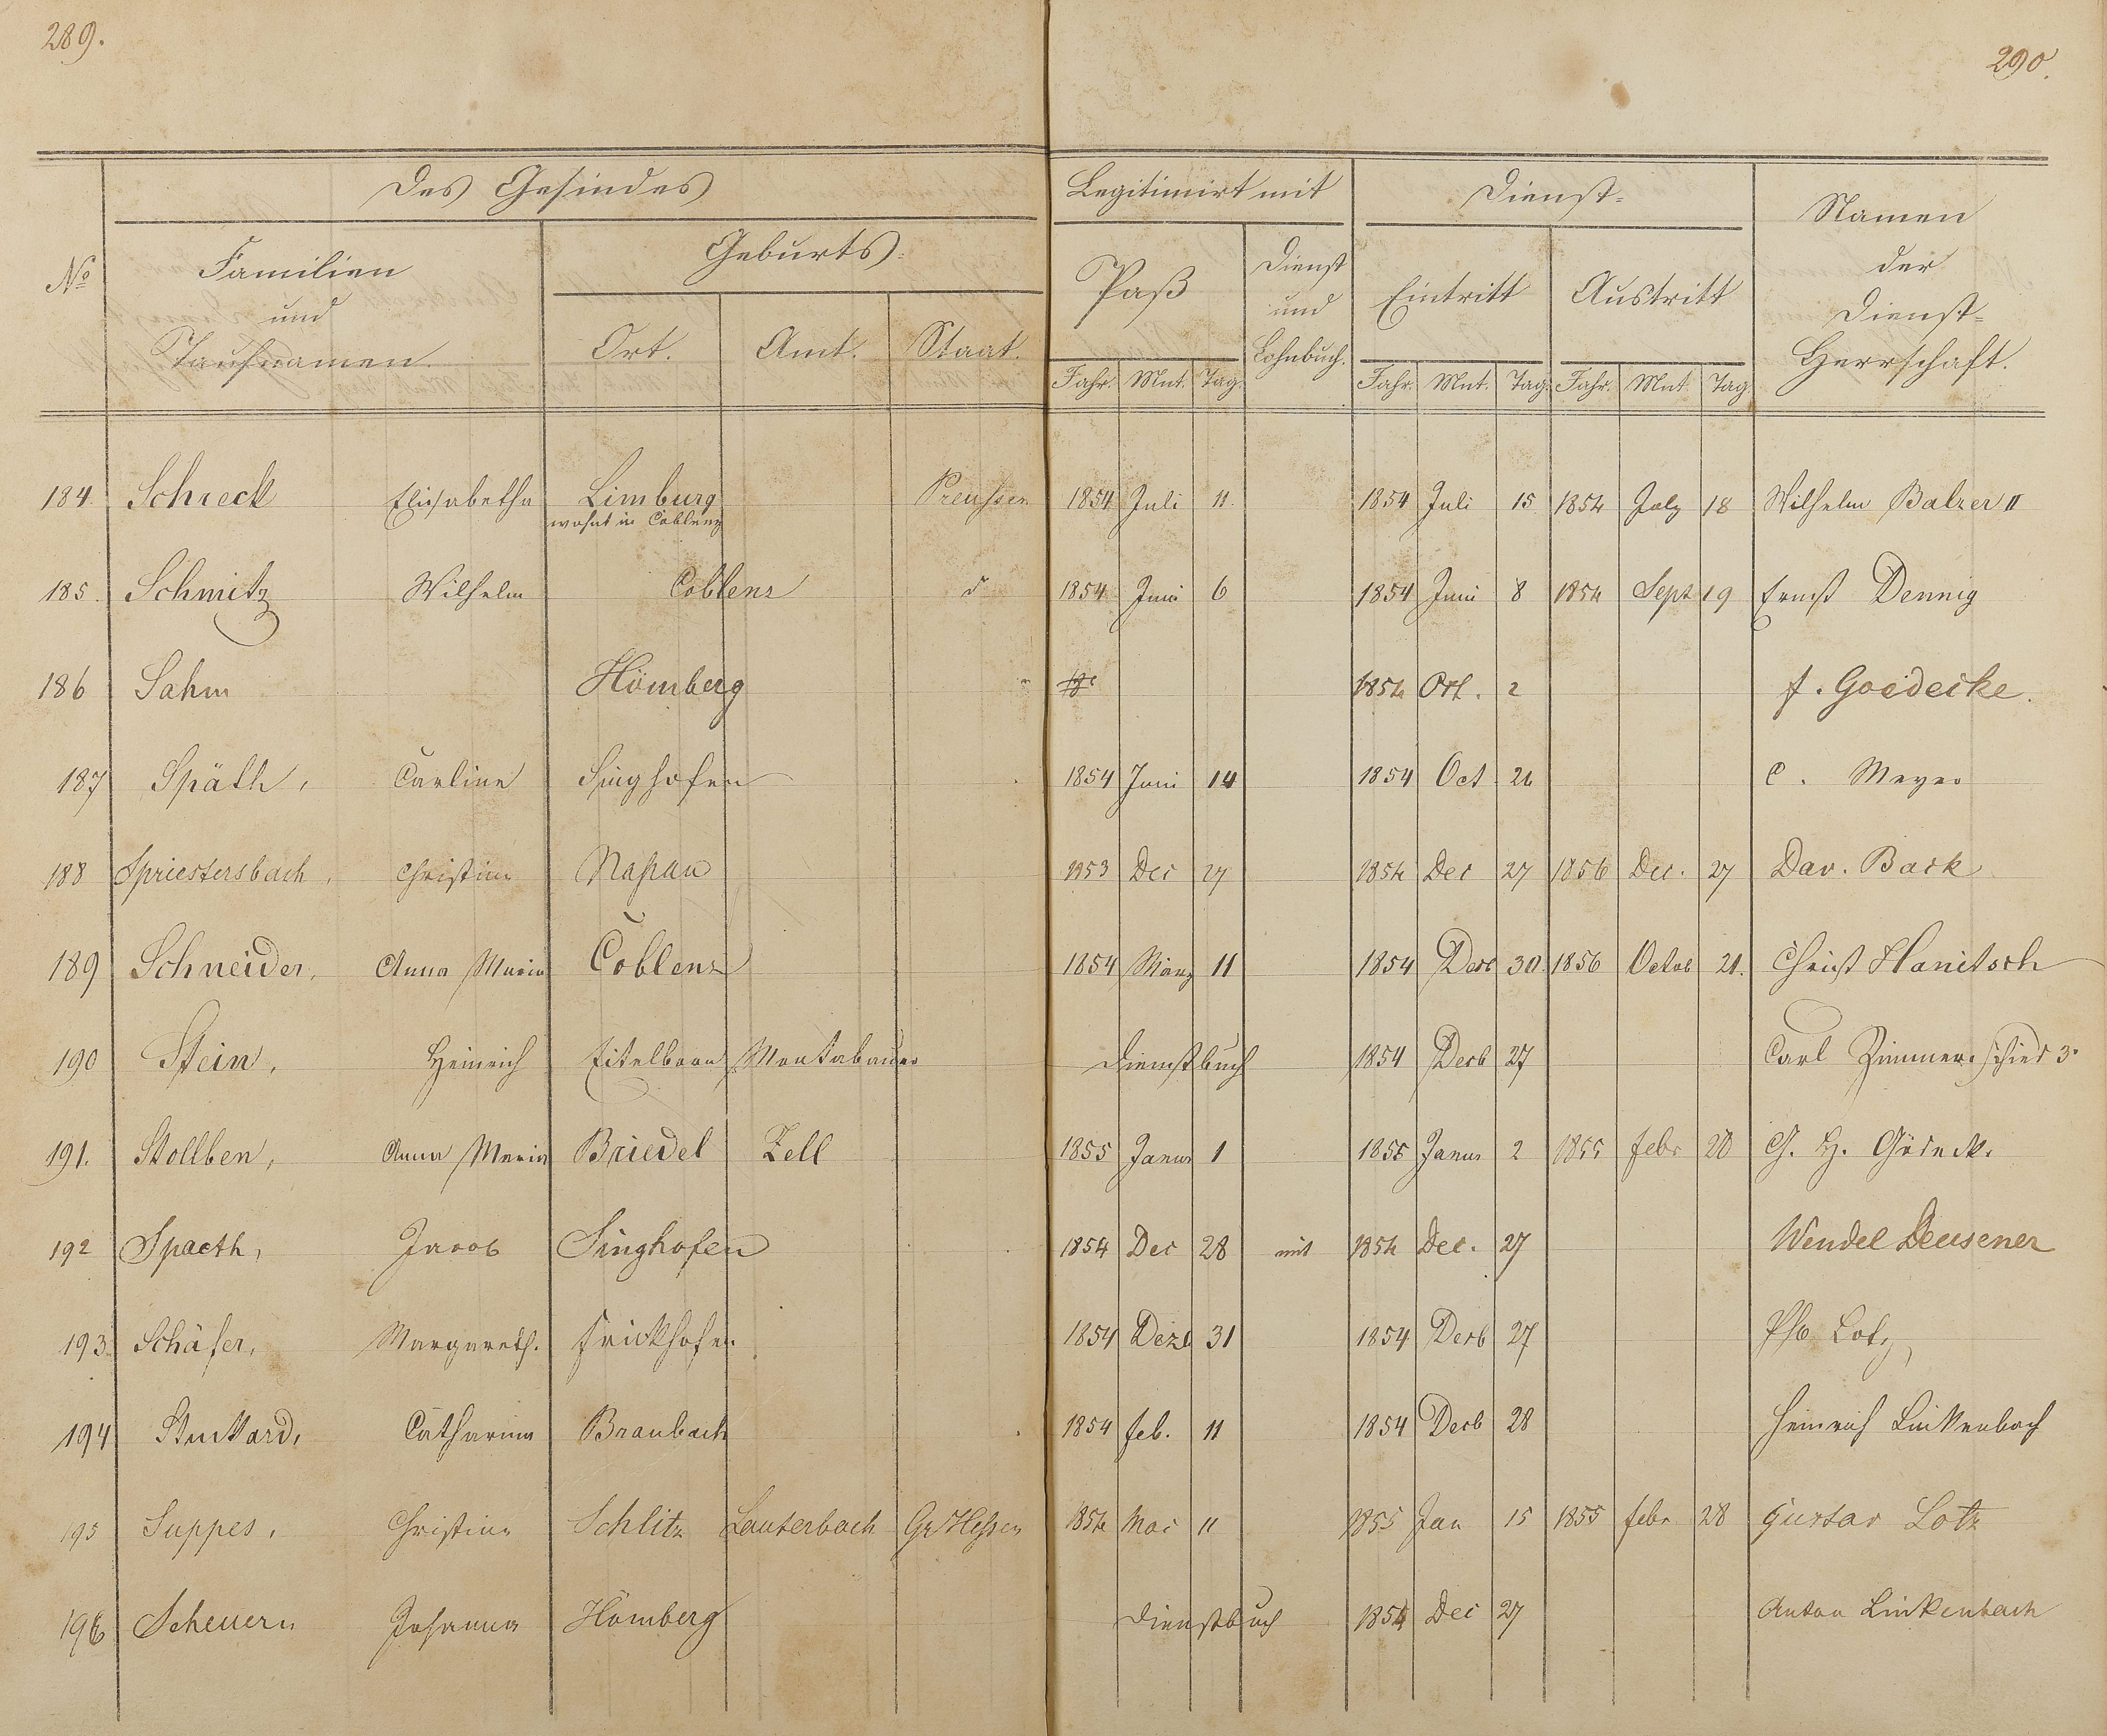 289.
290.
Des Gesindes
Legitimirt mit
Dienst-
Namen
der
Dienst-
Herrschaft.
No
Familien
und
Taufnamen.
Geburts-
Ort.
Amt.
Staat.
Paß
Dienst
und
Lohnbuch.
Eintritt
Austritt
Jahr. Mnt. Tag. Jahr. Mnt. Tag. Jahr. Mnt. Tag
184. Schreck Elisabetha Limburg Preussen 1854 Juli 11. 1854 Juli 15 1854 July 18 Wilhelm Balzer II
wohnt in Coblenz
185. Schmitz Wilhelm Coblenz d 1854 Juni 6 1854 Juni 8 1854 Sept 19 Ernst Dennig
186 Sahm Hömberg 1854 Oct. 2 f. Goedecke.
187 Späth, Carline Singhofen 1854 Juni 14 1854 Oct. 26 C. Meyer
188 Spriestersbach, Christine Naßau 1853 Dec 27 1854 Dec 27 1856 Dec. 27 Dav. Back
189 Schneider, Anna Maria Coblenz 1854 März 11 1854 Decb 30. 1856 Octob 21. Christ Hanitsch
190 Stein, Heinrich Eitelborn Montabauer Dienstbuch 1854 Decb 27 Carl Zimmerschied 3.
191. Stollben, Anna Maria Briedel Zell 1855 Januar 1 1855 Januar 2 1855 febr 28 G. H.
192 Spaeth, Jacob Singhofen 1854 Dec 28 mit 1854 Dec. 27 Wendel Deusener
193. Schäfer, Margareth. Frickhofen 1854 Dezb 31 1854 Decb 27 Lotz
194 Catharina Braubach 1854 feb. 11 1854 Decb 28 Heinrich Linkenbach
195 Suppes, Christine Schlitz Lauterbach Gr Heßen 1854 Mai 11 1855 Jan 15 1855 febr 28 Gustav Lotz
196 Scheuern Johanna Hömberg Dienstbuch 1854 Dec 27 Anton Linkenbach